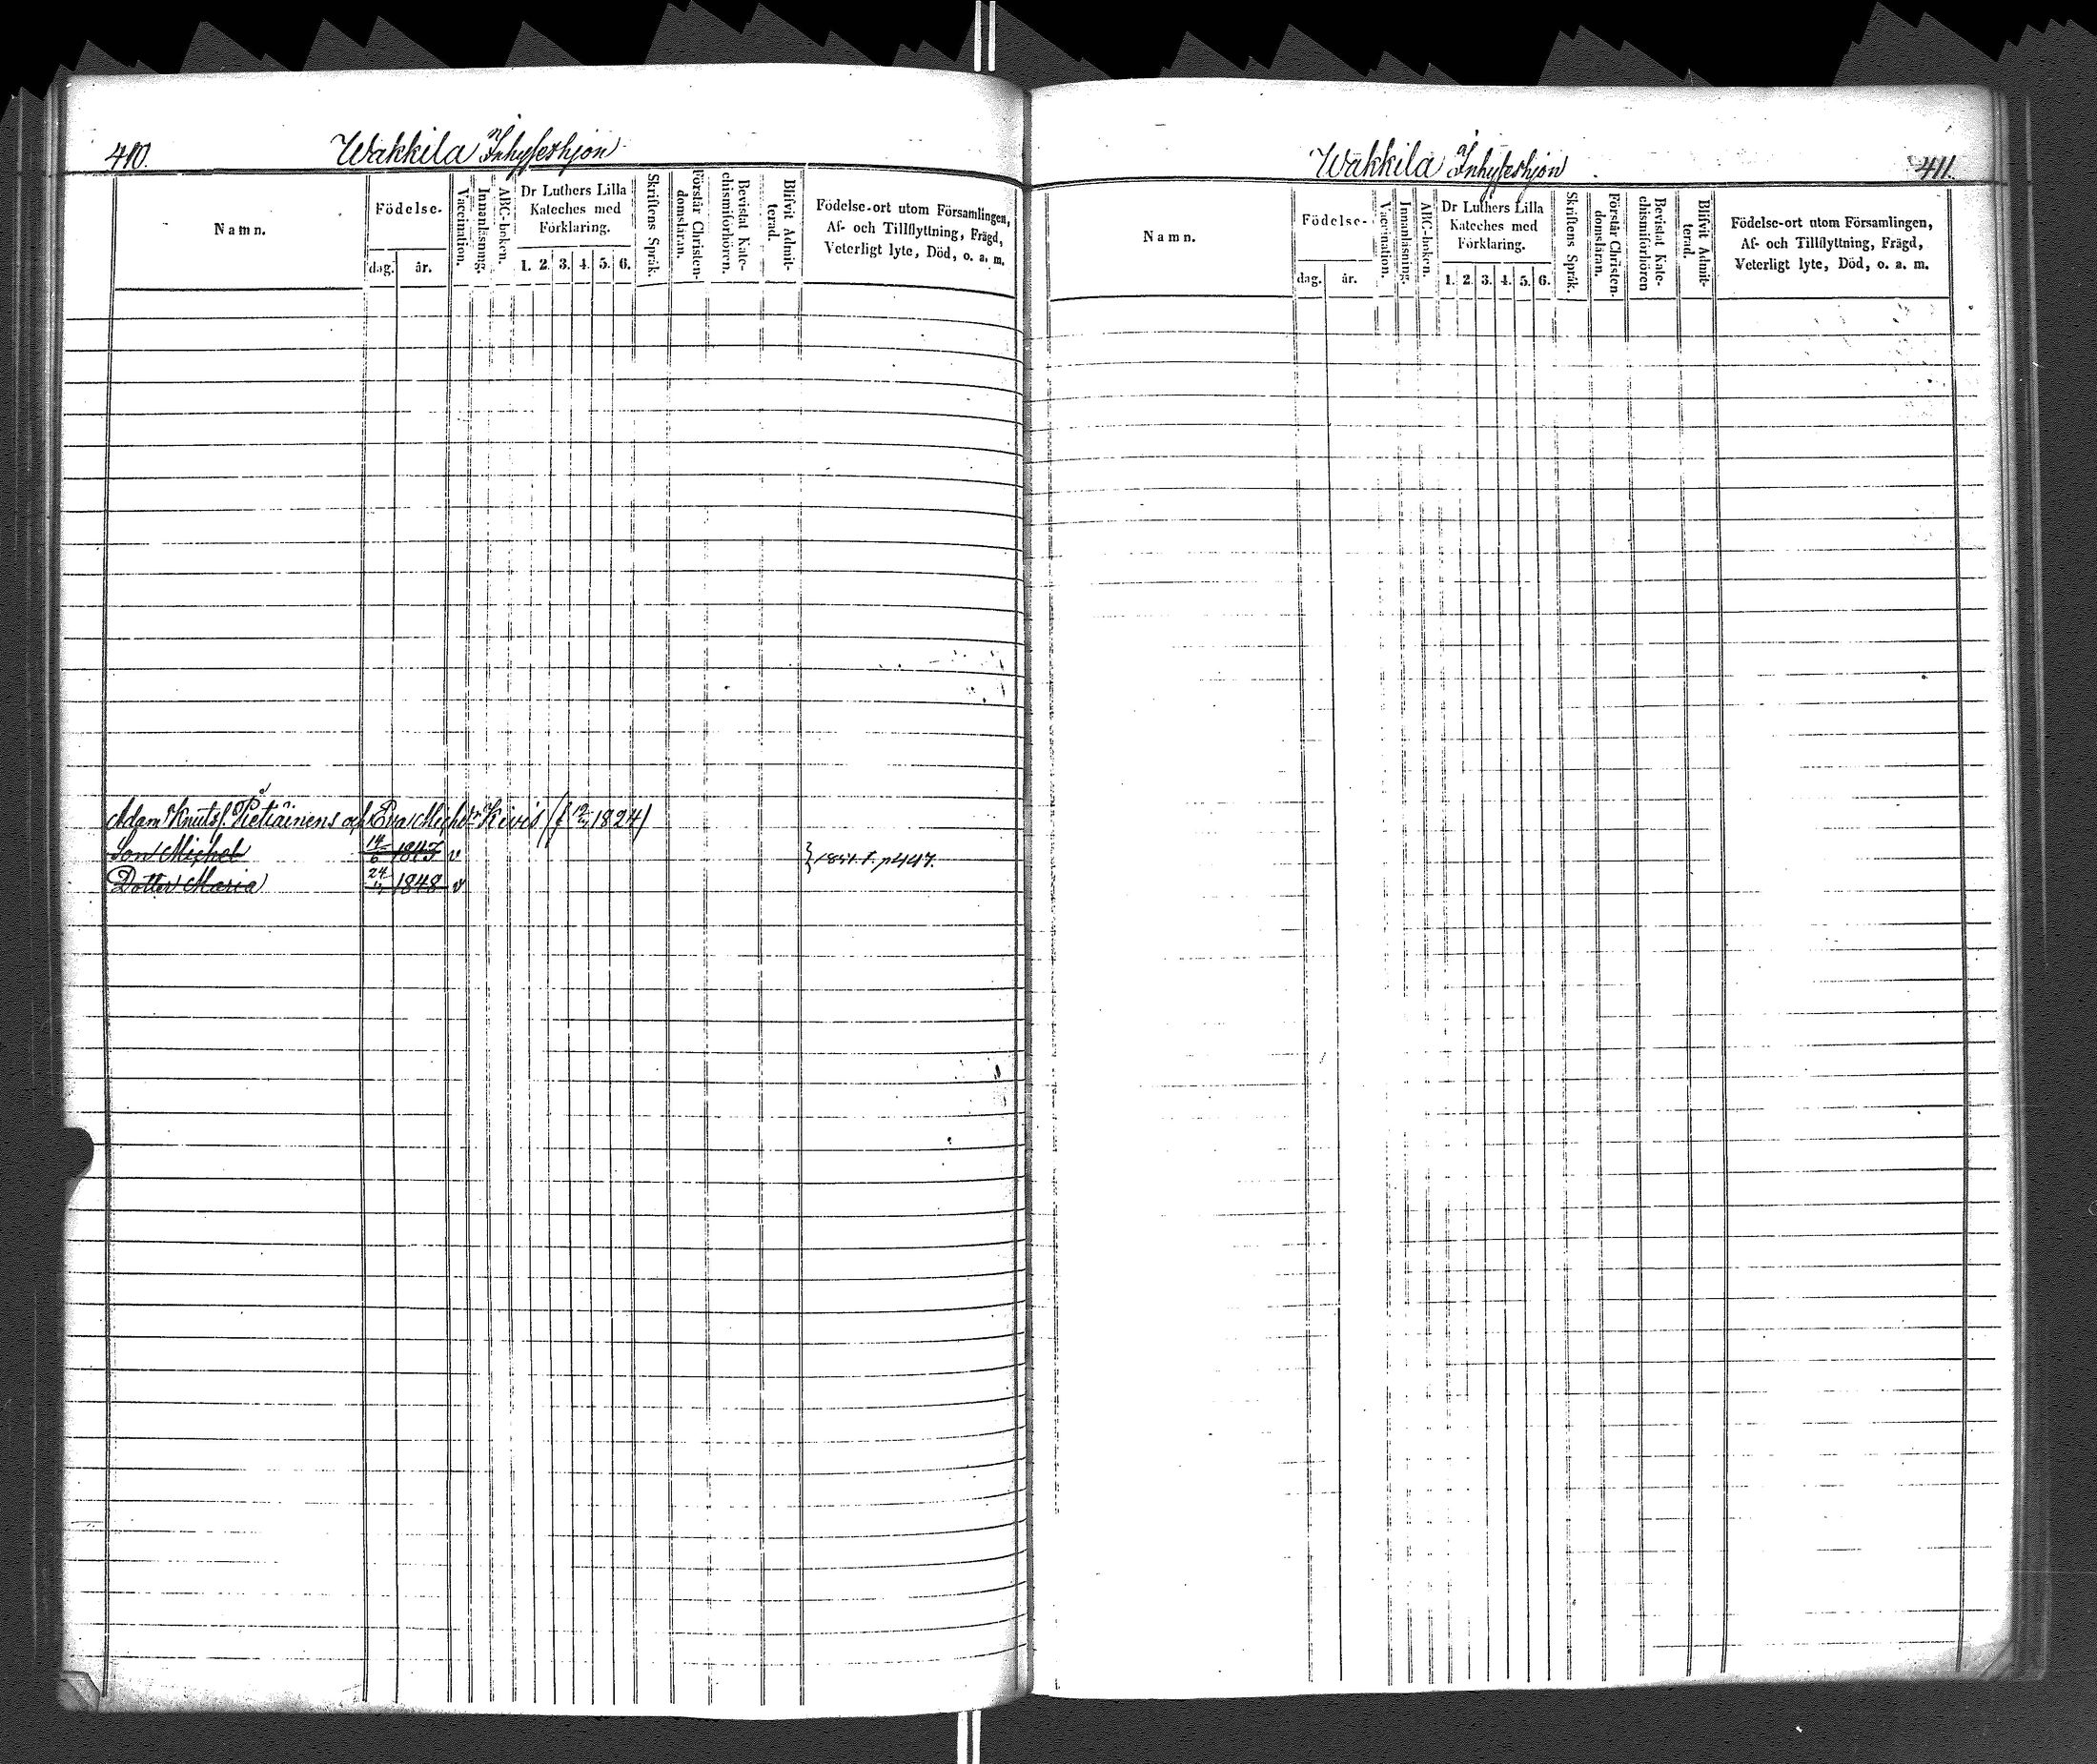 410.
Wakkila Inhyseshjon
Namn.
Födelse-
dag.
år.
Vaccination.
Innanläsning.
ABC-boken.
Dr Luthers Lilla
Kateches med
Förklaring.
1. 2. 3. 4. 5. 6.
Skriftens Språk.
Förstår Christen-
domsläran.
Bevistat Kate-
chismiförhören.
Blifvit Admit-
terad.
Födelse-ort utom Församlingen,
Af- och Tillflyttning, Frägd,
Veterligt lyte, Död, o. a. m.
Adam Knuts. Pietiäinens och Eva Michsdr Kivis 1824)
Son Michel 14/6 1843 v
} 1851. p 447.
Dotter Maria 24 1848 v
Wakkila Inhyseshjon
411.
Namn.
Födelse-
dag.
år.
Vaccination.
Innanläsning.
ABC-boken.
Dr Luthers Lilla
Kateches med
Förklaring.
1. 2. 3. 4. 5. 6.
Skriftens Språk.
Förstår Christen-
domsläran.
Bevistat Kate-
chismiförhören
Blifvit Admit-
terad.
Födelse-ort utom Församlingen,
Af- och Tillflyttning, Frägd,
Veterligt lyte, Död, o. a. m.